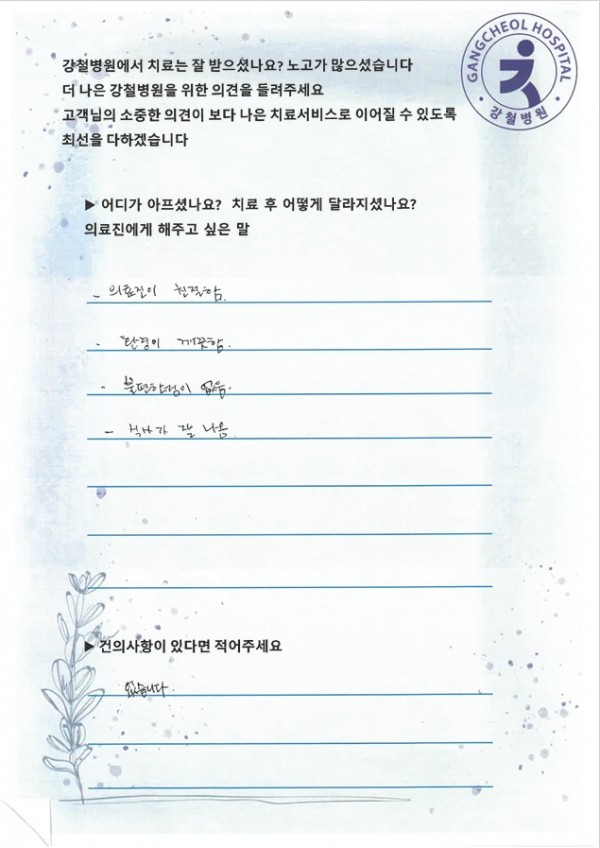 강철병원에서 치료는 잘 받으셨나요? 노고가 많으셨습니다
더 나은 강철병원을 위한 의견을 들려주세요
고객님의 소중한 의견이 보다 나은 치료서비스로 이어질 수 있도록
최선을 다하겠습니다
GANGCHEOL HOSPITAL
강철병원
▶ 어디가 아프셨나요? 치료 후 어떻게 달라지셨나요?
의료진에게 해주고 싶은 말
- 의료진이 친절함.
- 환경이 깨끗함.
- 불편한점이 없음.
- 식사가 잘 나옴.
▶ 건의사항이 있다면 적어주세요
없습니다.